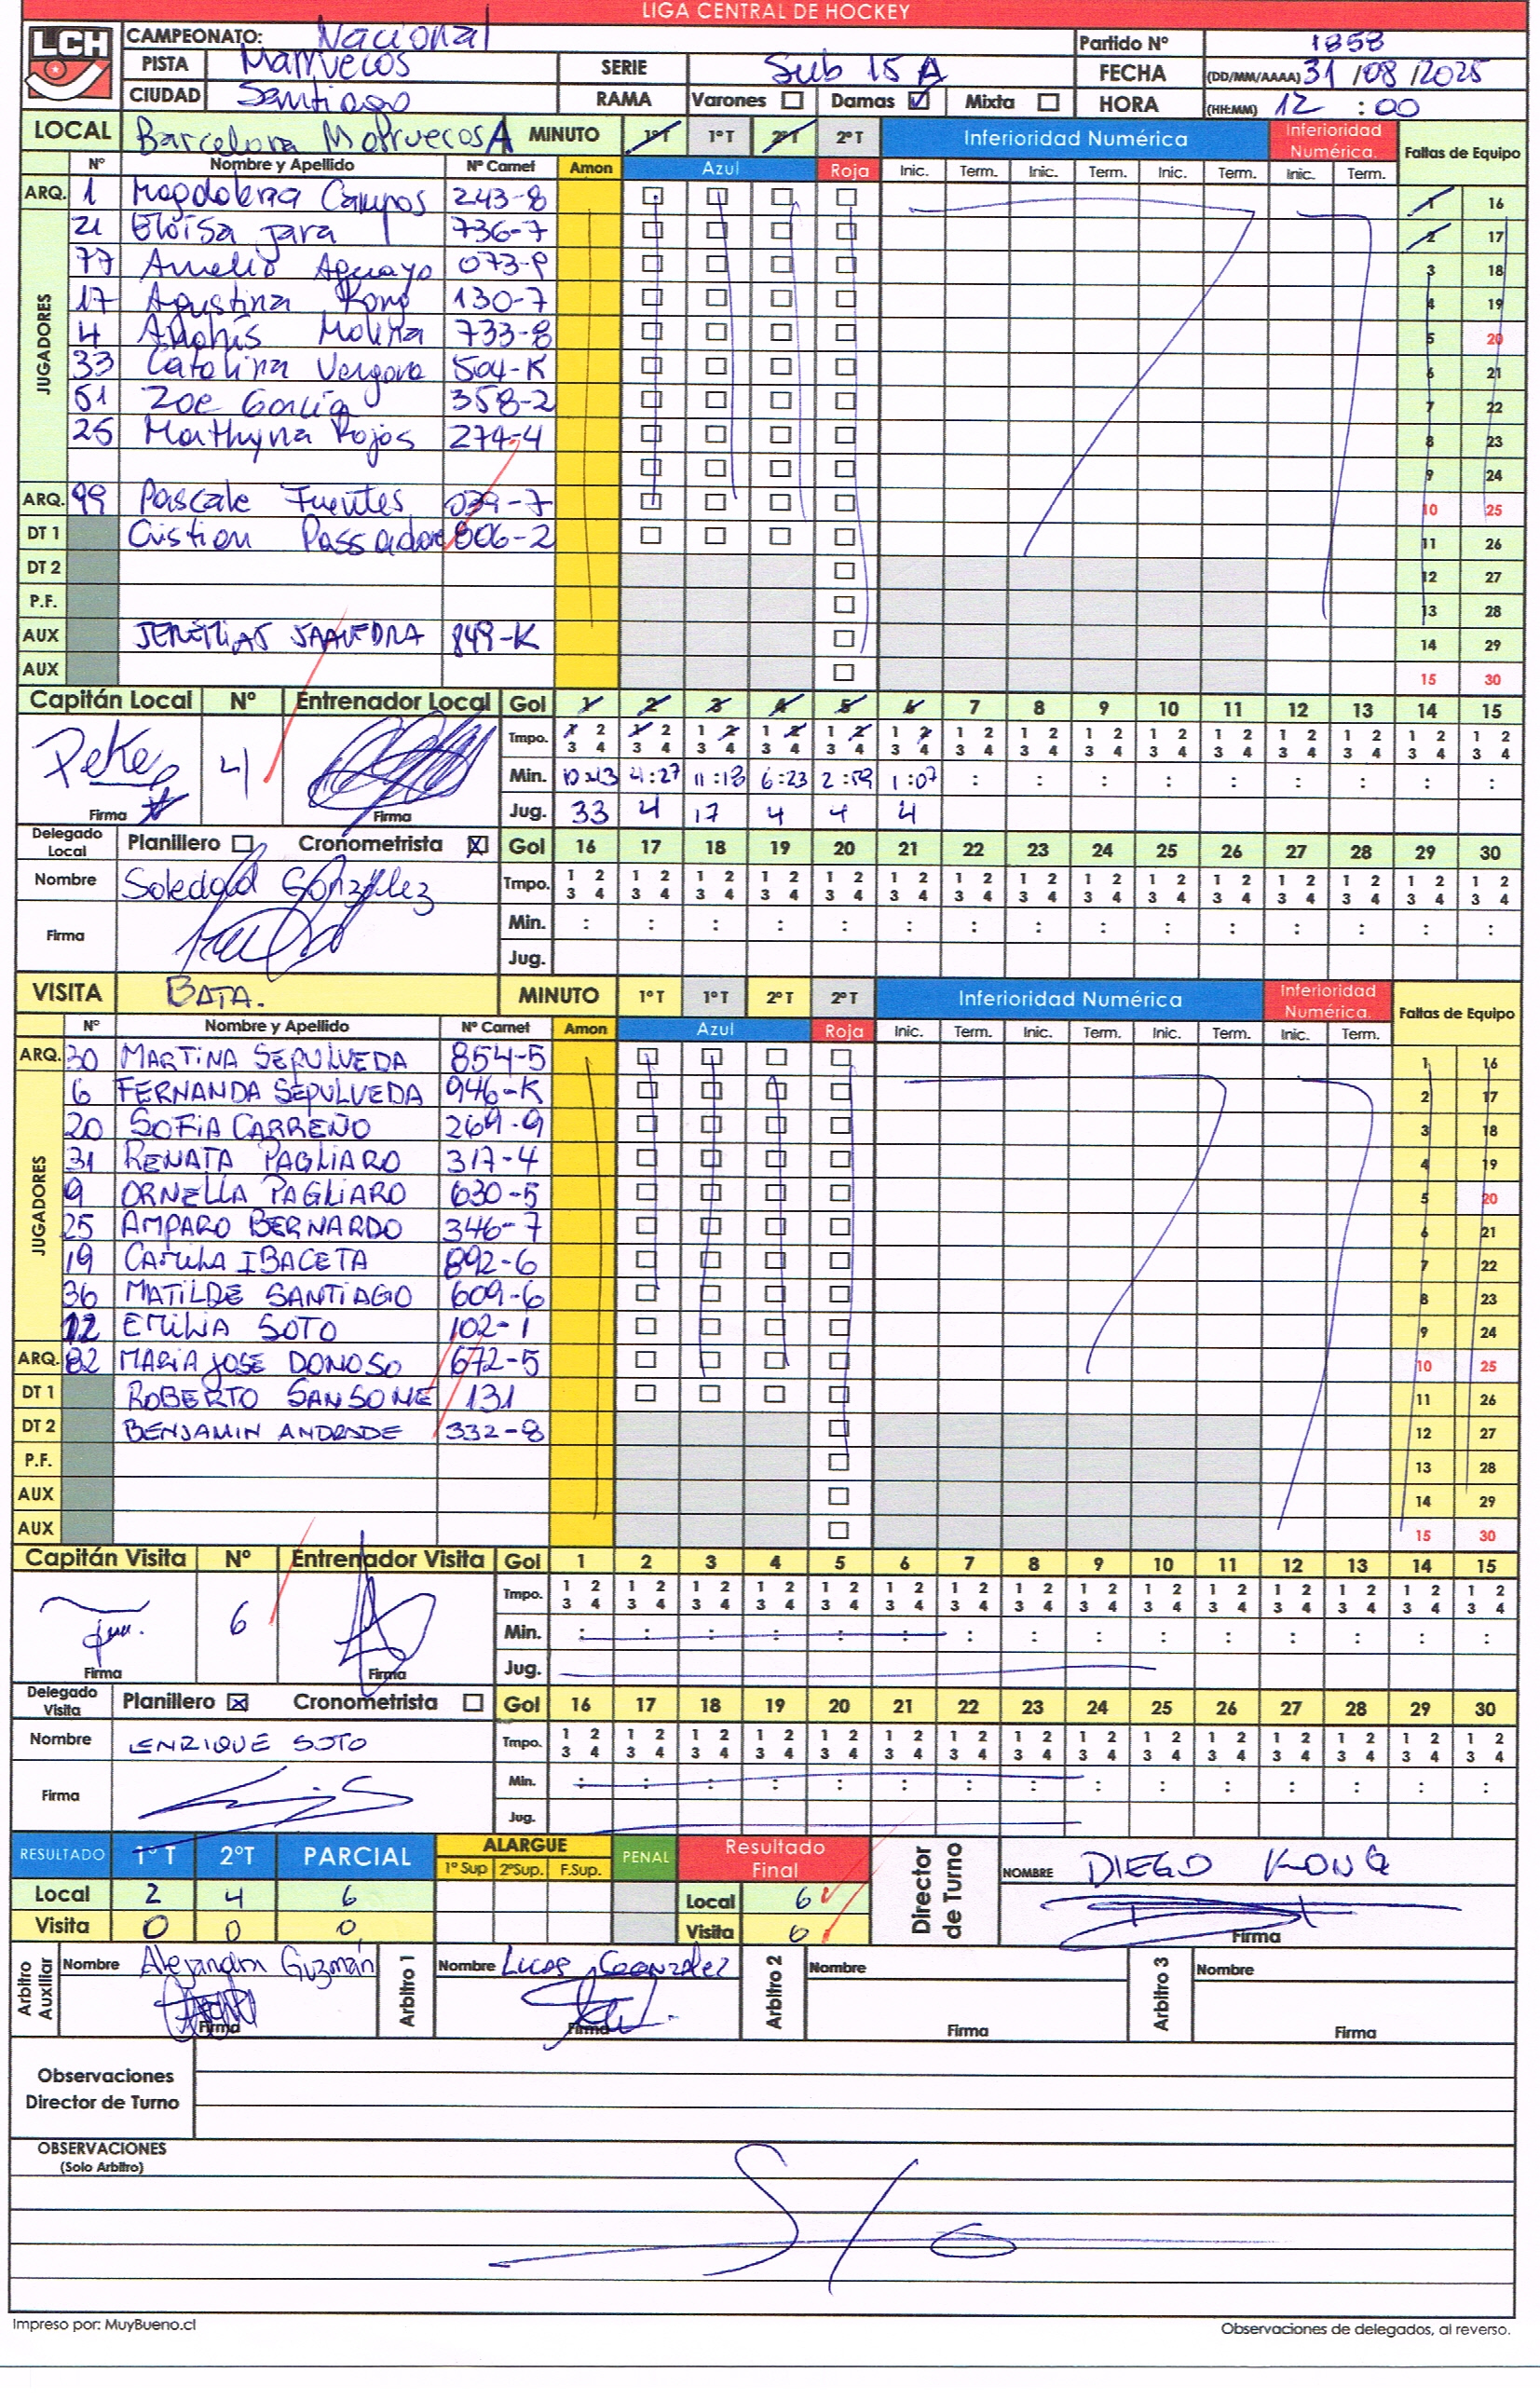 LIGA CENTRAL DE HOCKEY
LCH
CAMPEONATO: Nacional Partido Nº 1858
PISTA Marruecos SERIE Sub 15 A FECHA (DD/MM/AAAA) 31 /08 /2025
CIUDAD Santiago RAMA Varones Damas Mixta HORA (HH:MM) 12 : 00
LOCAL Barcelona Marruecos A MINUTO 1º T 1º T 2º T 2º T Inferioridad Numérica Inferioridad Numérica. Faltas de Equipo
Nº Nombre y Apellido Nº Carnet Amon Azul Roja Inic. Term. Inic. Term. Inic. Term. Inic. Term.
ARQ. 1 Magdalena Campos 243-8 1 16
JUGADORES
21 Eloisa Jara 736-7 2 17
77 Aguayo 3 18
17 Agustina 130-7 4 19
4 Molina 733-8 5 20
33 Catalina Vergara 504-K 6 21
51 Zoe García 358-2 7 22
25 Rojas 274-4 8 23
9 24
ARQ. 99 Pascale Fuentes 039-7 10 25
DT 1 Cristian 806-2 11 26
DT 2 12 27
P.F. 13 28
AUX JEREMIAS SAAVEDRA 849-K 14 29
AUX 15 30
Capitán Local Nº Entrenador Local Gol 1 2 3 4 5 6 7 8 9 10 11 12 13 14 15
Peke 4 Tmpo. 1 2 1 2 1 2 1 2 1 2 1 2 1 2 1 2 1 2 1 2 1 2 1 2 1 2 1 2 1 2
3 4 3 4 3 4 3 4 3 4 3 4 3 4 3 4 3 4 3 4 3 4 3 4 3 4 3 4 3 4
Min. 4:27 11:18 6:23 2:59 1:07 : : : : : : : : :
Firma Firma Jug. 33 4 17 4 4 4
Delegado Local Planillero Cronometrista Gol 16 17 18 19 20 21 22 23 24 25 26 27 28 29 30
Nombre Soledad González Tmpo. 1 2 1 2 1 2 1 2 1 2 1 2 1 2 1 2 1 2 1 2 1 2 1 2 1 2 1 2 1 2
3 4 3 4 3 4 3 4 3 4 3 4 3 4 3 4 3 4 3 4 3 4 3 4 3 4 3 4 3 4
Firma Min. : : : : : : : : : : : : : : :
Jug.
VISITA BATA. MINUTO 1º T 1º T 2º T 2º T Inferioridad Numérica Inferioridad Numérica. Faltas de Equipo
Nº Nombre y Apellido Nº Carnet Amon Azul Roja Inic. Term. Inic. Term. Inic. Term. Inic. Term.
ARQ. 30 MARTINA SEPULVEDA 854-5 1 16
JUGADORES
6 FERNANDA SEPULVEDA 946-K 2 17
20 SOFIA CARREÑO 269-9 3 18
31 RENATA PAGLIARO 317-4 4 19
9 ORNELLA PAGLIARO 630-5 5 20
25 AMPARO BERNARDO 346-7 6 21
19 IBACETA 892-6 7 22
36 MATILDE SANTIAGO 609-6 8 23
12 EMILIA SOTO 102-1 9 24
ARQ. 82 MARIA JOSE DONOSO 672-5 10 25
DT 1 ROBERTO SANSONE 131 11 26
DT 2 BENJAMIN ANDRADE 332-8 12 27
P.F. 13 28
AUX 14 29
AUX 15 30
Capitán Visita Nº Entrenador Visita Gol 1 2 3 4 5 6 7 8 9 10 11 12 13 14 15
6 Tmpo. 1 2 1 2 1 2 1 2 1 2 1 2 1 2 1 2 1 2 1 2 1 2 1 2 1 2 1 2 1 2
3 4 3 4 3 4 3 4 3 4 3 4 3 4 3 4 3 4 3 4 3 4 3 4 3 4 3 4 3 4
Min. : : : : : : : : : : : : : : :
Firma Firma Jug.
Delegado Visita Planillero Cronometrista Gol 16 17 18 19 20 21 22 23 24 25 26 27 28 29 30
Nombre ENRIQUE SOTO Tmpo. 1 2 1 2 1 2 1 2 1 2 1 2 1 2 1 2 1 2 1 2 1 2 1 2 1 2 1 2 1 2
3 4 3 4 3 4 3 4 3 4 3 4 3 4 3 4 3 4 3 4 3 4 3 4 3 4 3 4 3 4
Firma Min. : : : : : : : : : : : : : : :
Jug.
RESULTADO 1º T 2ºT PARCIAL ALARGUE 1º Sup 2ºSup. F.Sup. PENAL Resultado Final Director de Turno NOMBRE DIEGO KONG
Local 2 4 6 Local 6
Visita 0 0 0 Visita 0 Firma
Arbitro Auxiliar Nombre Alejandra Guzmán Arbitro 1 Nombre Lucas Gonzalez Arbitro 2 Nombre Arbitro 3 Nombre
Firma Firma Firma Firma
Observaciones
Director de Turno
OBSERVACIONES
(Solo Arbitro)
S/o
Impreso por: MuyBueno.cl Observaciones de delegados, al reverso.